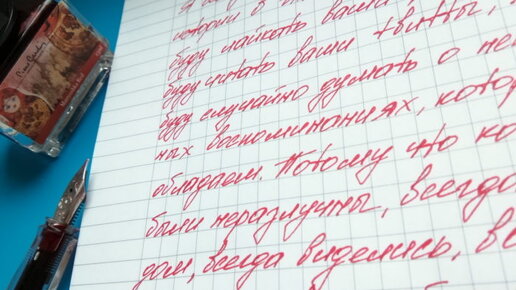 истории в
буду лайкать ваши
буду читать ваши твитты,
буду случайно думать о
ных воспоминаниях,
обладаем. Потому что
были неразлучны, всегда
дом, всегда виделись,